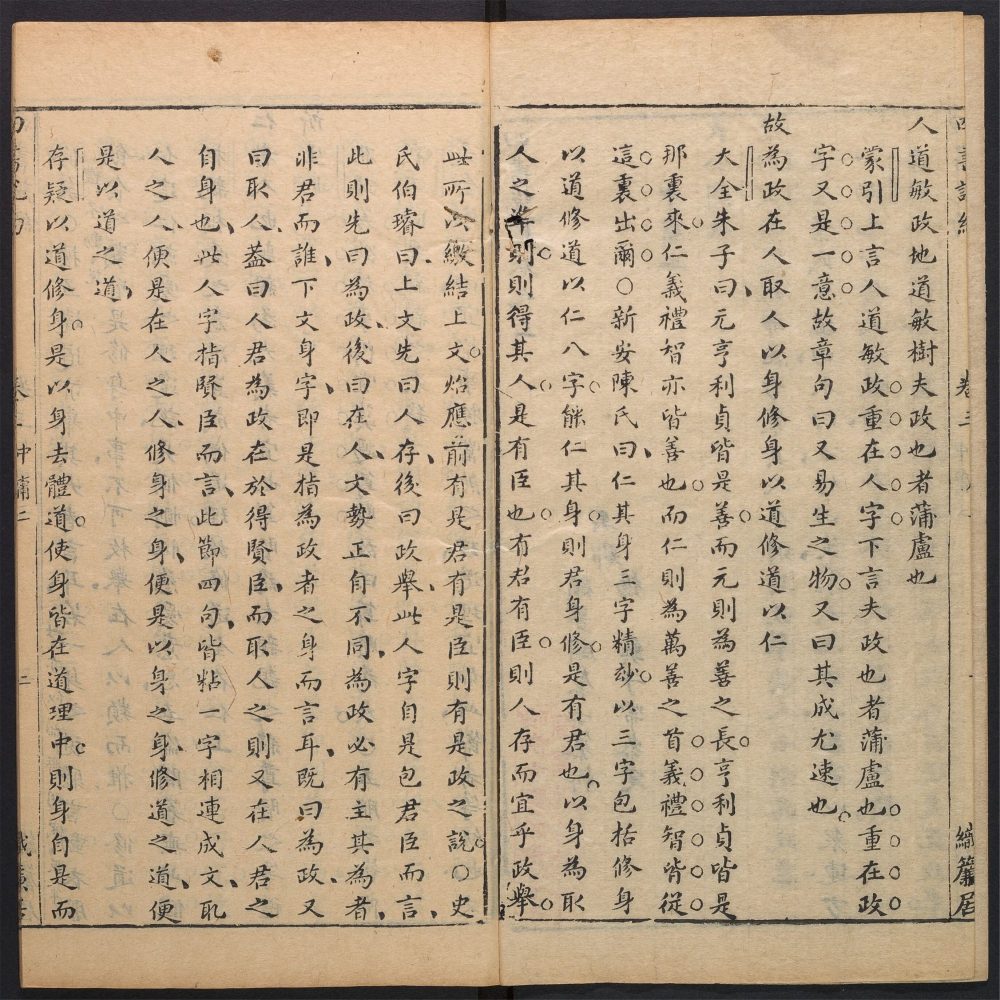 人道敏政地道敏樹夫政也者蒲盧也
蒙引上言人道敏政重在人字下言夫政也者蒲盧也重在政
字又是一意故章句曰又易生之物又曰其成尤速也
故為政在人取人以身修身以道修道以仁
大全朱子曰元亨利貞皆是善而元則為善之長亨利貞皆是
那裏來仁義禮智亦皆善也而仁則為萬善之首義禮智皆從
這裏出爾○新安陳氏曰仁其身三字精妙以三字包括修身
以道修道以仁八字能仁其身則君身修是有君也以身為取
人之準則則得其人是有臣也有君有臣則人存而宜乎政舉
此所以繳結上文炤應前有是君有是臣則有是政之說○史
氏伯璿曰上文先曰人存後曰政舉此人字自是包君臣而言
此則先曰為政後曰在人文勢正自不同為政必有主其為者
非君而誰下文身字即是指為政者之身而言耳既曰為政又
曰取人蓋曰人君為政在於得賢臣而取人之則又在人君之
自身也此人字指賢臣而言此節四句皆粘一字相連成文取
人之人便是在人之人修身之身便是以身之身修道之道便
是以道之道
存疑以道修身是以身去體道使身皆在道理中則身自是而
卷三
中庸二
二
織簾居